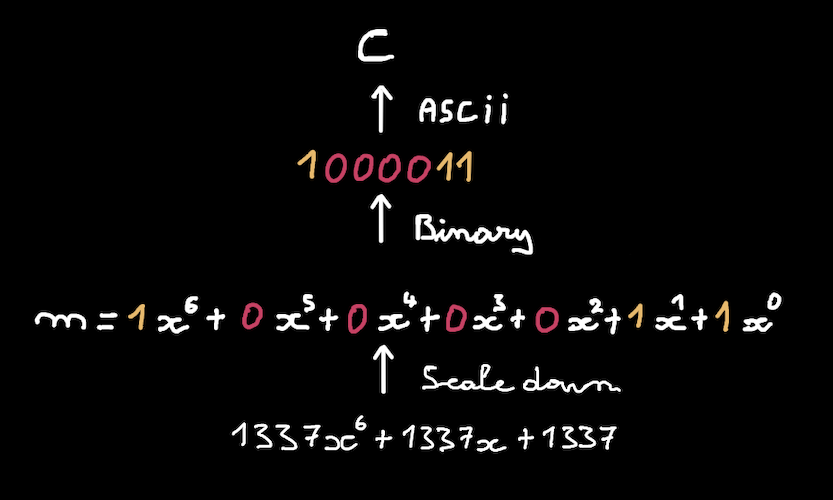 C
↑ ASCii
1000011
↑ Binary
m = 1x⁶ + 0x⁵ + 0x⁴ + 0x³ + 0x² + 1x¹ + 1x⁰
↑ Scale down
1337x⁶ + 1337x + 1337